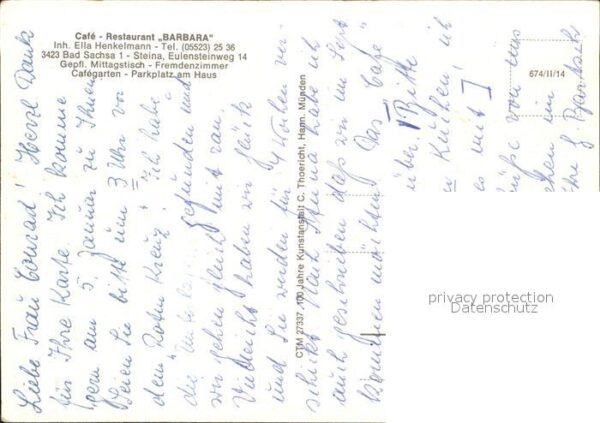 Café - Restaurant „BARBARA"
Inh. Ella Henkelmann - Tel. (05523) 25 36
3423 Bad Sachsa 1 - Steina, Eulensteinweg 14
Gepfl. Mittagstisch - Fremdenzimmer
Cafégarten - Parkplatz am Haus
674/II/14
CTM 27337 100 Jahre Kunstanstalt C. Thoericht, Hann. Münden
Liebe Frau Conrad! Herzl. Dank
für Ihre Karte. Ich komme
gern am 5. Januar zu Ihnen.
Seien Sie bitte um 3 Uhr vor
dem "Roten Kreuz". Ich habe
die gefunden und
wir gehen gleich mit ran.
Vielleicht haben wir Glück
und Sie werden für 4 Wochen ver-
schickt. Nach Steina habe ich
auch geschrieben daß wir im Sept.
kommen möchten. Das Café
über. Bitte
Kuchen! ich
es mit!
von uns
privacy protection
Datenschutz